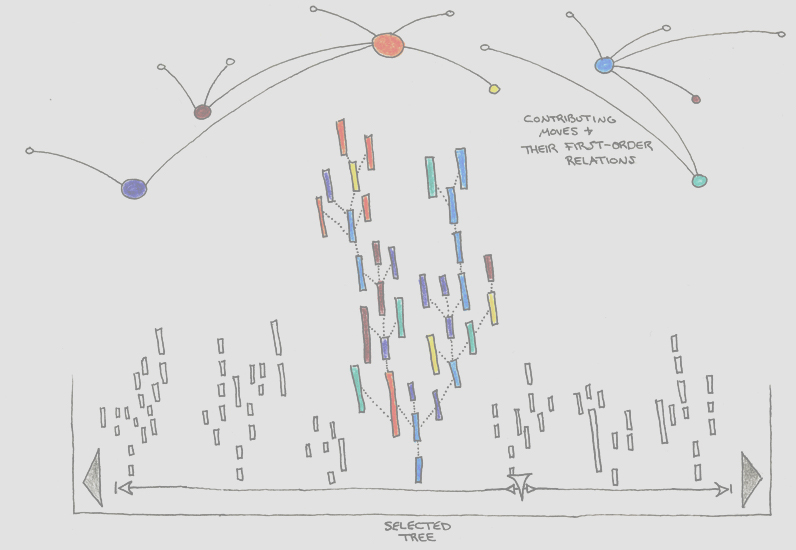 CONTRIBUTING
MOVES +
THEIR FIRST-ORDER
RELATIONS
SELECTED
TREE